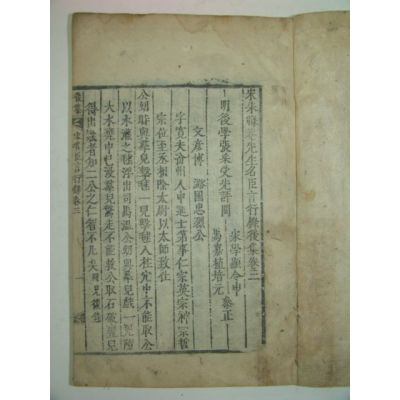 宋朱晦菴先生名臣言行錄後集卷三
宋學顯令申 參正
明後學張采受先評閱
馬嘉植培元
文彥博 潞國忠烈公
字寬夫汾州人中進士第事仁宗英宗神宗哲
宗位至丞相除太尉以太師致仕
公幼時與羣兒擊毬入柱穴中不能取公
以水灌之毬浮出司馬溫公幼與羣兒戲一兒墮
大水甕中已沒羣兒驚走不能救公取石破甕兒
得出識者知二公之仁智不凡
後集
宋名臣言行錄卷三